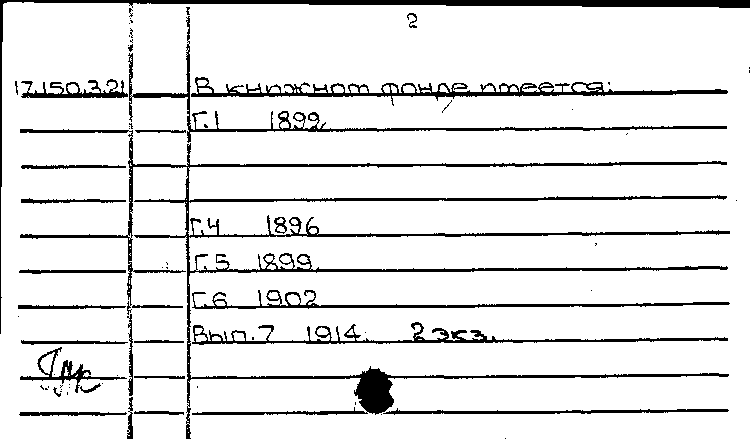 2
17.150.3.21 В книжном фонде имеется:
Г.1 1899.
Г.4 1896
Г.5 1899.
Г.6 1902
Вып.7 1914. 2 экз.